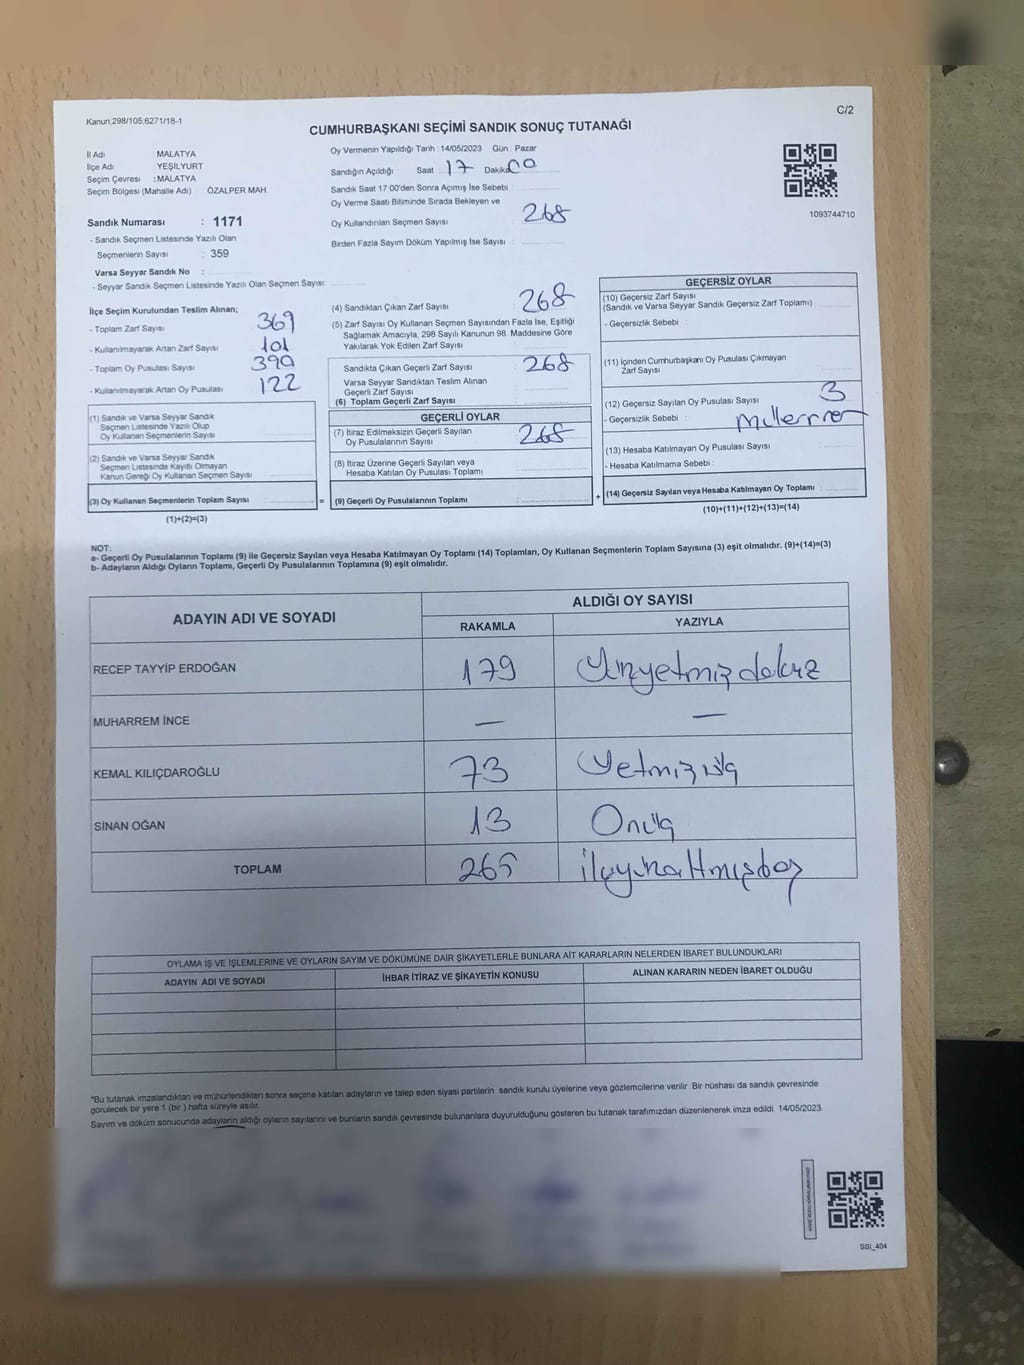 Kanun;298/105;6271/18-1
C/2
CUMHURBAŞKANI SEÇİMİ SANDIK SONUÇ TUTANAĞI
İl Adı : MALATYA
İlçe Adı : YEŞİLYURT
Seçim Çevresi : MALATYA
Seçim Bölgesi (Mahalle Adı) ÖZALPER MAH.
Sandık Numarası : 1171
- Sandık Seçmen Listesinde Yazılı Olan
Seçmenlerin Sayısı : 359
Varsa Seyyar Sandık No :
- Seyyar Sandık Seçmen Listesinde Yazılı Olan Seçmen Sayısı:
Oy Vermenin Yapıldığı Tarih : 14/05/2023 Gün : Pazar
Sandığın Açıldığı Saat 17 Dakika 00
Sandık Saat 17:00'den Sonra Açımış İse Sebebi
Oy Verme Saati Bitiminde Sırada Bekleyen ve
Oy Kullandırılan Seçmen Sayısı : 268
Birden Fazla Sayım Döküm Yapılmış İse Sayısı :
1093744710
İlçe Seçim Kurulundan Teslim Alınan;
- Toplam Zarf Sayısı : 369
- Kullanılmayarak Artan Zarf Sayısı : 101
- Toplam Oy Pusulası Sayısı : 390
- Kullanılmayarak Artan Oy Pusulası : 122
(1) Sandık ve Varsa Seyyar Sandık
Seçmen Listesinde Yazılı Olup
Oy Kullanan Seçmenlerin Sayısı :
(2) Sandık ve Varsa Seyyar Sandık
Seçmen Listesinde Kayıtlı Olmayan
Kanun Gereği Oy Kullanan Seçmen Sayısı :
(3) Oy Kullanan Seçmenlerin Toplam Sayısı :
(1)+(2)=(3)
(4) Sandıktan Çıkan Zarf Sayısı : 268
(5) Zarf Sayısı Oy Kullanan Seçmen Sayısından Fazla İse, Eşitliği
Sağlamak Amacıyla, 298 Sayılı Kanunun 98. Maddesine Göre
Yakılarak Yok Edilen Zarf Sayısı :
Sandıkta Çıkan Geçerli Zarf Sayısı : 268
Varsa Seyyar Sandıktan Teslim Alınan
Geçerli Zarf Sayısı :
(6) Toplam Geçerli Zarf Sayısı :
GEÇERLİ OYLAR
(7) İtiraz Edilmeksizin Geçerli Sayılan
Oy Pusulalarının Sayısı : 268
(8) İtiraz Üzerine Geçerli Sayılan veya
Hesaba Katılan Oy Pusulası Toplamı :
= (9) Geçerli Oy Pusulalarının Toplamı : +
GEÇERSİZ OYLAR
(10) Geçersiz Zarf Sayısı
(Sandık ve Varsa Seyyar Sandık Geçersiz Zarf Toplamı) :
- Geçersizlik Sebebi :
(11) İçinden Cumhurbaşkanı Oy Pusulası Çıkmayan
Zarf Sayısı :
(12) Geçersiz Sayılan Oy Pusulası Sayısı : 3
- Geçersizlik Sebebi :
(13) Hesaba Katılmayan Oy Pusulası Sayısı :
- Hesaba Katılmama Sebebi :
(14) Geçersiz Sayılan veya Hesaba Katılmayan Oy Toplamı :
(10)+(11)+(12)+(13)=(14)
NOT:
a- Geçerli Oy Pusulalarının Toplamı (9) ile Geçersiz Sayılan veya Hesaba Katılmayan Oy Toplamı (14) Toplamları, Oy Kullanan Seçmenlerin Toplam Sayısına (3) eşit olmalıdır. (9)+(14)=(3)
b- Adayların Aldığı Oyların Toplamı, Geçerli Oy Pusulalarının Toplamına (9) eşit olmalıdır.
ADAYIN ADI VE SOYADI
ALDIĞI OY SAYISI
RAKAMLA YAZIYLA
RECEP TAYYİP ERDOĞAN 179 Yüzyetmiz dokuz
MUHARREM İNCE — —
KEMAL KILIÇDAROĞLU 73 Yetmiz üç
SİNAN OĞAN 13 Onüç
TOPLAM 265 ikiyüzaltmışbeş
OYLAMA İŞ VE İŞLEMLERİNE VE OYLARIN SAYIM VE DÖKÜMÜNE DAİR ŞİKAYETLERLE BUNLARA AİT KARARLARIN NELERDEN İBARET BULUNDUKLARI
ADAYIN ADI VE SOYADI İHBAR İTİRAZ VE ŞİKAYETİN KONUSU ALINAN KARARIN NEDEN İBARET OLDUĞU
*Bu tutanak imzalandıktan ve mühürlendikten sonra seçime katılan adayların ve talep eden siyasi partilerin sandık kurulu üyelerine veya gözlemcilerine verilir. Bir nüshası da sandık çevresinde
görülecek bir yere 1 (bir ) hafta süreyle asılır.
Sayım ve döküm sonucunda adayların aldığı oyların sayılarını ve bunların sandık çevresinde bulunanlara duyurulduğunu gösteren bu tutanak tarafımızdan düzenlenerek imza edildi 14/05/2023
SSI_404